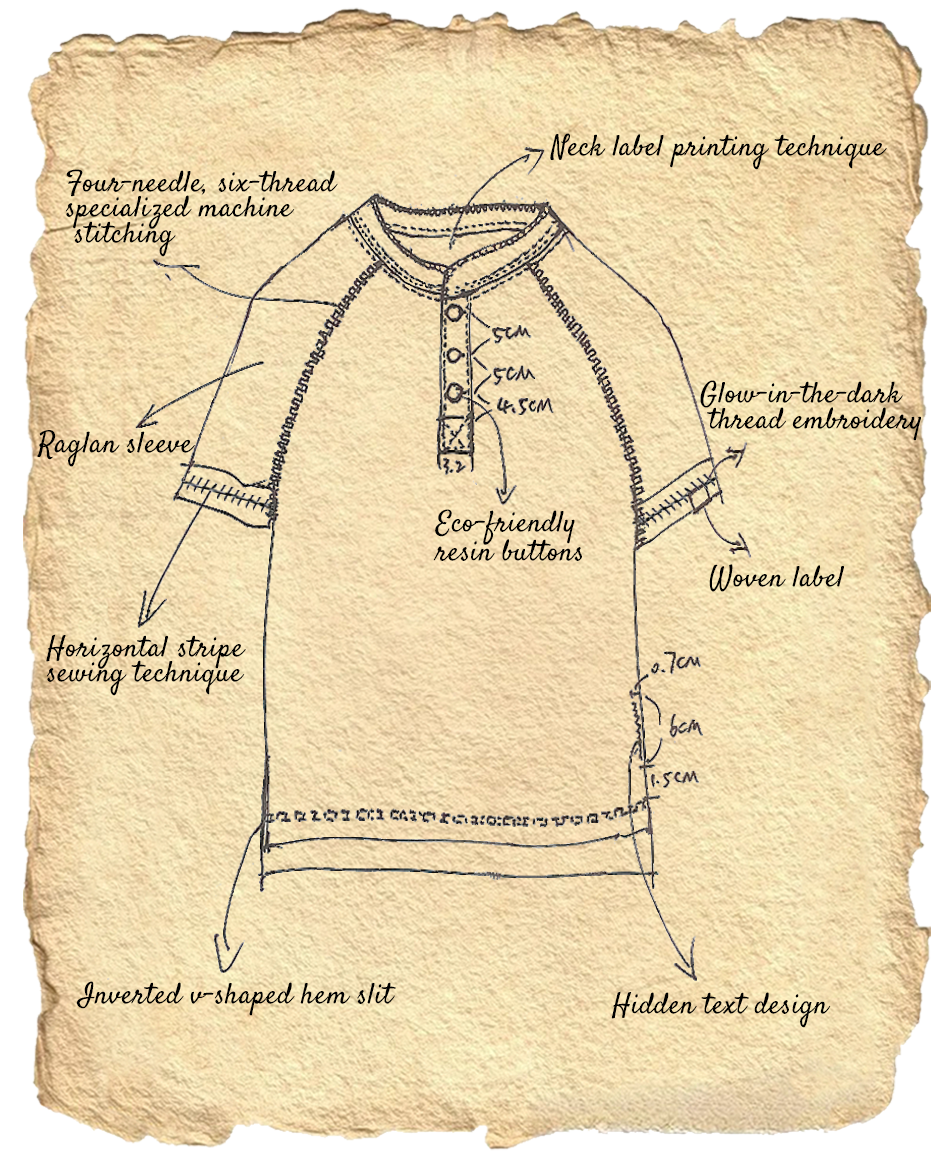 Neck label printing technique
Four-needle, six-thread
specialized machine
stitching
5CM
5CM
4.5CM
3.2
Glow-in-the-dark
thread embroidery
Raglan sleeve
Eco-friendly
resin buttons
Woven label
Horizontal stripe
sewing technique
0.7CM
6CM
1.5CM
Inverted v-shaped hem slit
Hidden text design